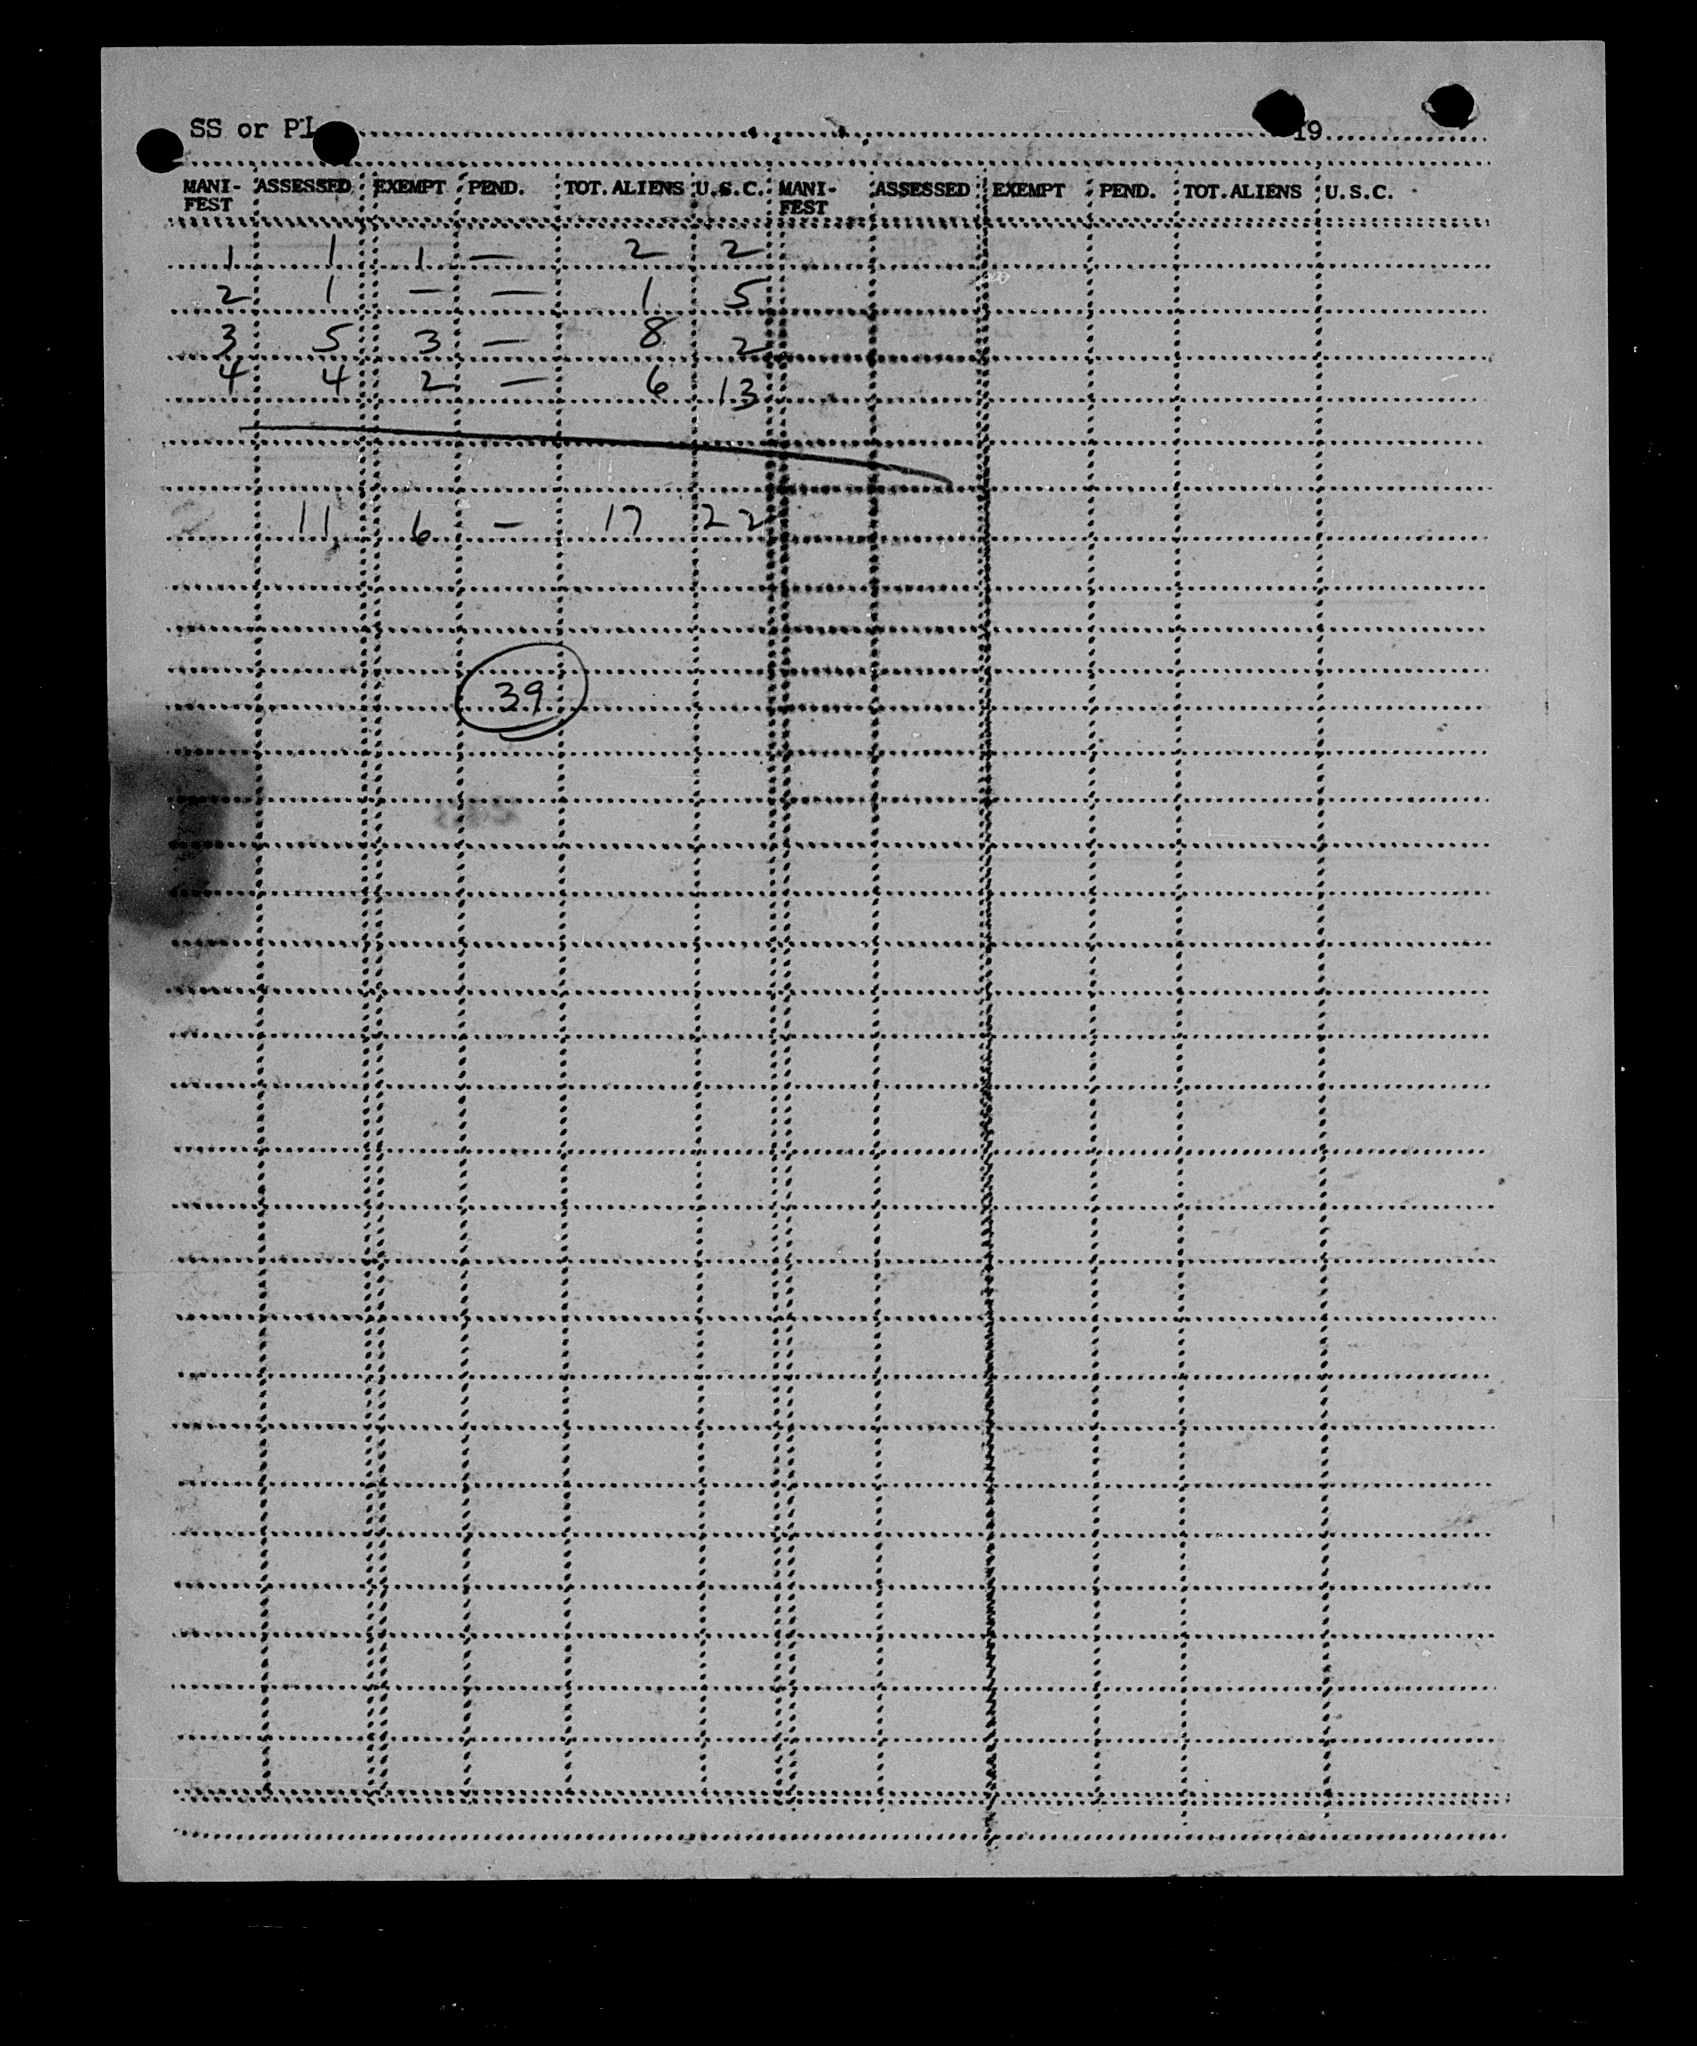 SS or Pl 19
MANI- ASSESSED EXEMPT PEND. TOT. ALIENS U.S.C. MANI- ASSESSED EXEMPT PEND. TOT. ALIENS U.S.C.
FEST FEST
1 1 1 — 2 2
2 1 — — 1 5
3 5 3 — 8 2
4 4 2 — 6 13
11 6 — 17 22
39